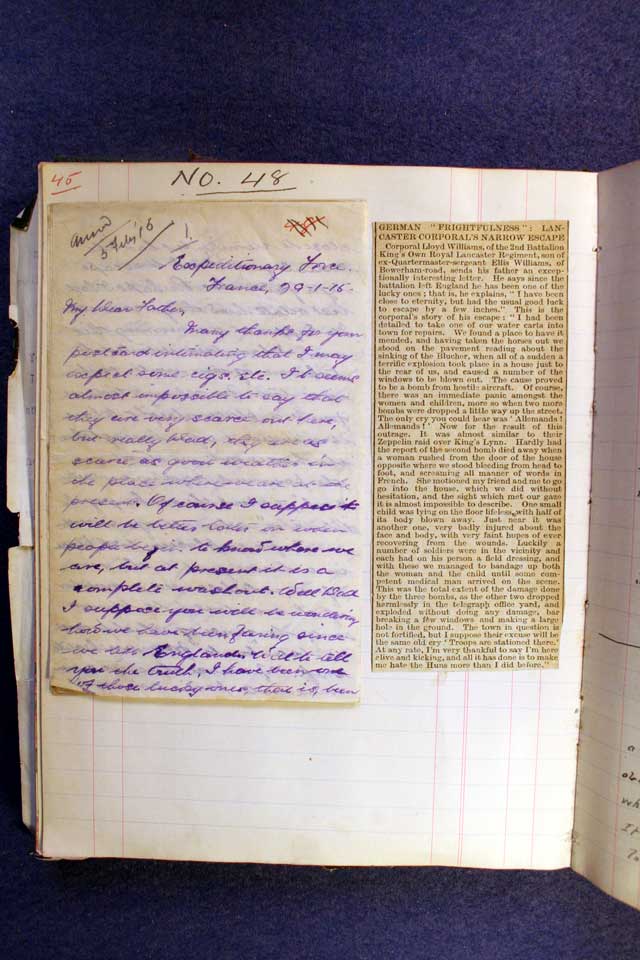 45
NO. 48
5 Feb'15
1.
Expeditionary Force.
France, 29-1-15-
My Dear Father,
Many thanks for your
postcard intimating that I may
expect some cigs. etc. It seems
almost impossible to say that
they are very scarce out here,
but really Dad, they are as
scarce as good weather in
the place where we are at the
present. Of course I suppose it
will be better later on when
people begin to know where we
are, but at present it is a
complete washout. Well Dad
I suppose you will be wondering
how we have been faring since
we left England. Well to tell
you the truth, I have been one
of those lucky ones, that is, been
GERMAN "FRIGHTFULNESS": LAN-
CASTER CORPORAL'S NARROW ESCAPE
Corporal Lloyd Williams, of the 2nd Battalion
King's Own Royal Lancaster Regiment, son of
ex-Quartermaster-sergeant Ellis Williams, of
Bowerham-road, sends his father an excep-
tionally interesting letter. He says since the
battalion left England he has been one of the
lucky ones; that is, he explains, "I have been
close to eternity, but had the usual good luck
to escape by a few inches." This is the
corporal's story of his escape: "I had been
detailed to take one of our water carts into
town for repairs. We found a place to have it
mended, and having taken the horses out we
stood on the pavement reading about the
sinking of the Blucher, when all of a sudden a
terrific explosion took place in a house just to
the rear of us, and caused a number of the
windows to be blown out. The cause proved
to be a bomb from hostile aircraft. Of course,
there was an immediate panic amongst the
women and children, more so when two more
bombs were dropped a little way up the street.
The only cry you could hear was 'Allemands!
Allemands!' Now for the result of this
outrage. It was almost similar to their
Zeppelin raid over King's Lynn. Hardly had
the report of the second bomb died away when
a woman rushed from the door of the house
opposite where we stood bleeding from head to
foot, and screaming all manner of words in
French. She motioned my friend and me to go
go into the house, which we did without
hesitation, and the sight which met our gaze
it is almost impossible to describe. One small
child was lying on the floor lifeless, with half of
its body blown away. Just near it was
another one, very badly injured about the
face and body, with very faint hopes of ever
recovering from the wounds. Luckily a
number of soldiers were in the vicinity and
each had on his person a field dressing, and
with these we managed to bandage up both
the woman and the child until some com-
petent medical man arrived on the scene.
This was the total extent of the damage done
by the three bombs, as the other two dropped
harmlessly in the telegraph office yard, and
exploded without doing any damage, bar
breaking a few windows and making a large
hole in the ground. The town in question is
not fortified, but I suppose their excuse will be
the same old cry 'Troops are stationed there.'
At any rate, I'm very thankful to say I'm here
alive and kicking, and all it has done is to make
me hate the Huns more than I did before."